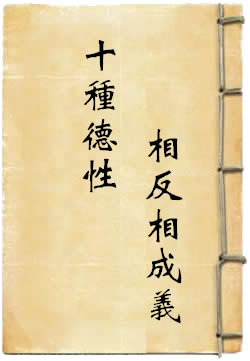 十種德性
相反相成義